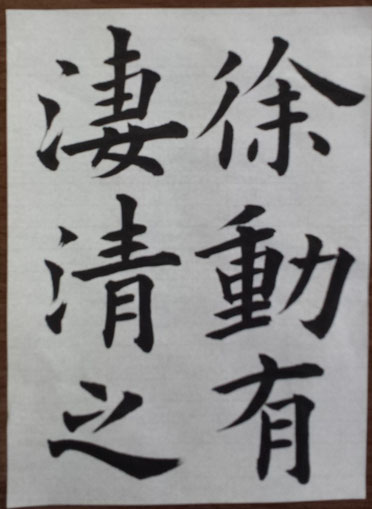 徐動有
淒清之